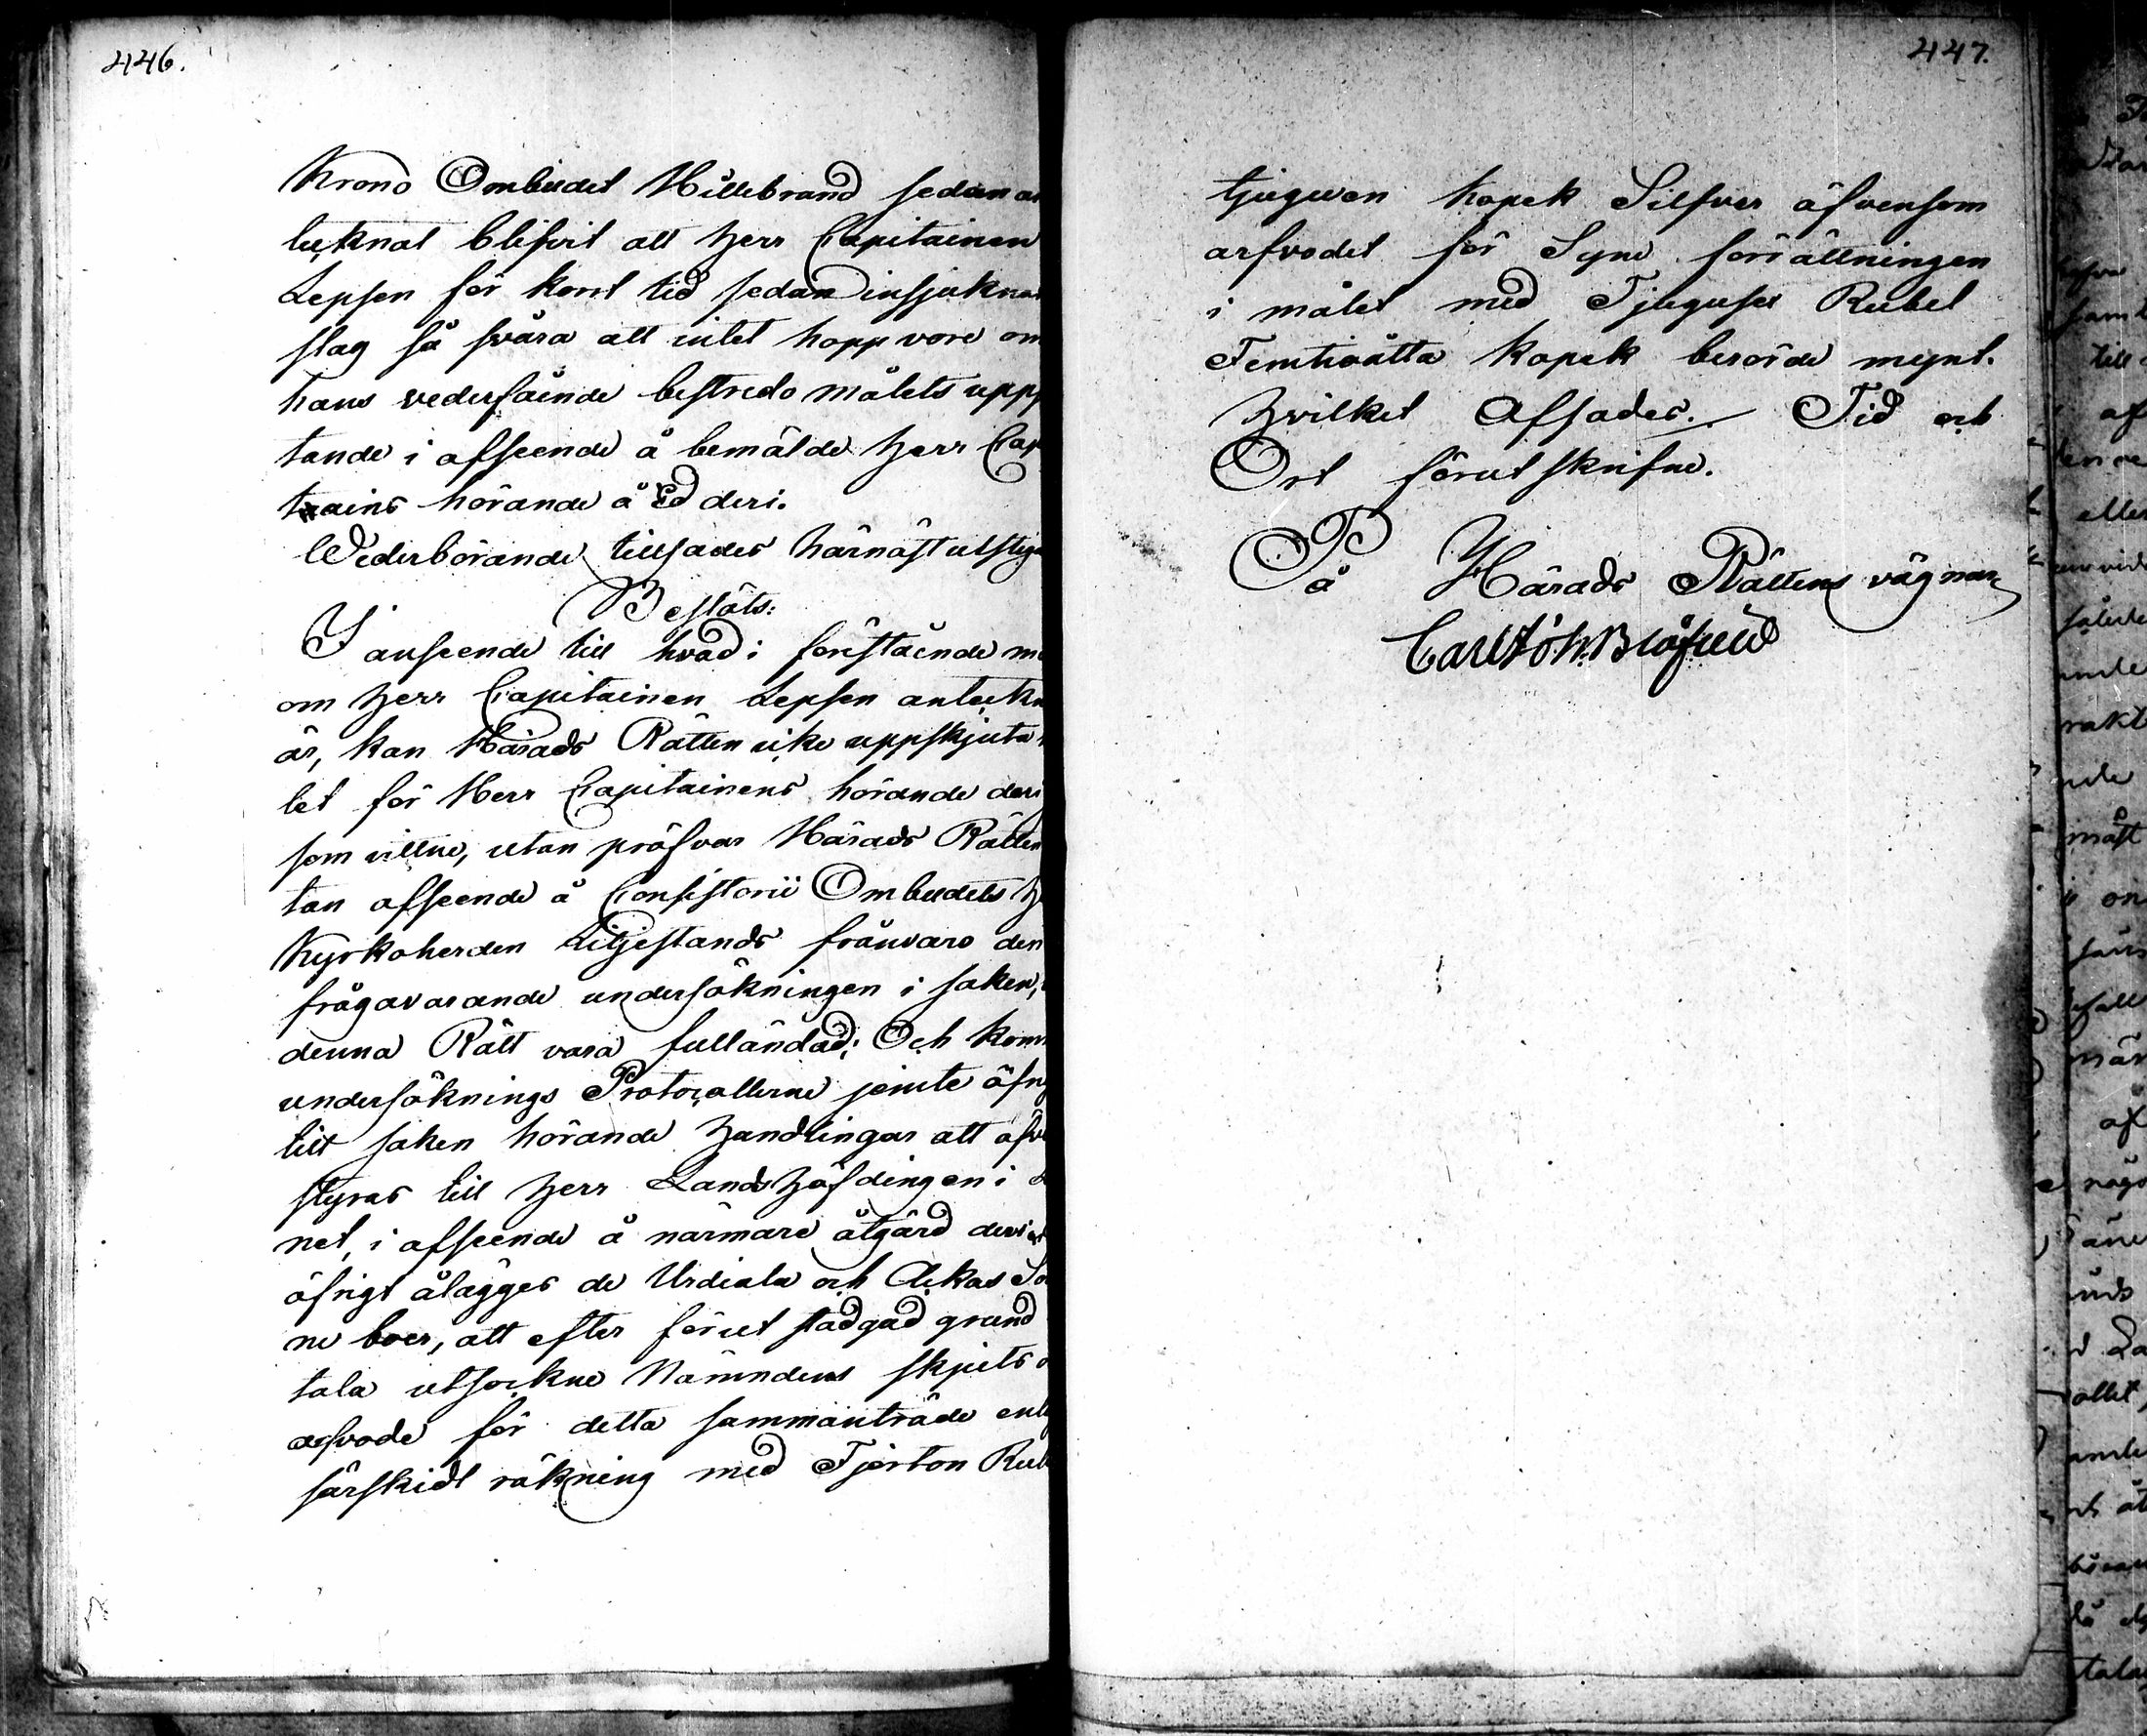 446.
Krono Ombudet Hillebrand sedan an
tecknat blifvit att Herr Capitainen
Lepsen för kort tid sedan insjuknat
slag så svåra att intet hopp vore om
hans vederfående bestredo målets upp
tande i afseende å bemälde Herr Cap
tains hörande å Ed deri.
Wederbörande tillsades härnäst utstiga
Beslöts:
I anseende till hvad i förestående må
om Herr Capitainen Lepsen anteckn
är, kan Härads Rätten icke uppskjuta
let för Herr Capitainens hörande deri
som vittne, utan pröfvar Härads Rätten
tan afseende å Consistorii Ombudets H
Kyrkoherden Liljestrands frånvaro den
frågavarande undersökningen i saken,
denna Rätt vara fulländad; Och komm
undersöknings Protocollerne jemte öfrig
till saken hörande Handlingar att öfve
styras till Herr Lands Höfdingen i
net, i afseende å närmare åtgärd deri
öfrigt ålägges de Urdiala och Ackas So
ne boer, att efter förut stadgad grund
tala utsockne Nämndens skjuts
arfvode för detta sammanträde enl
särskidt räkning med Fjorton Rub
447.
tjuguen kopek Silfver äfvensom
arfvodet för Syne förrättningen
i målet med Tjugusex Rubel
Femtioåtta kopek berörde mynt.
Hvilket Afsades. Tid och
Ort förutskrifne.
På Härads Rättens vägnar
Carl Joh. Blåfield